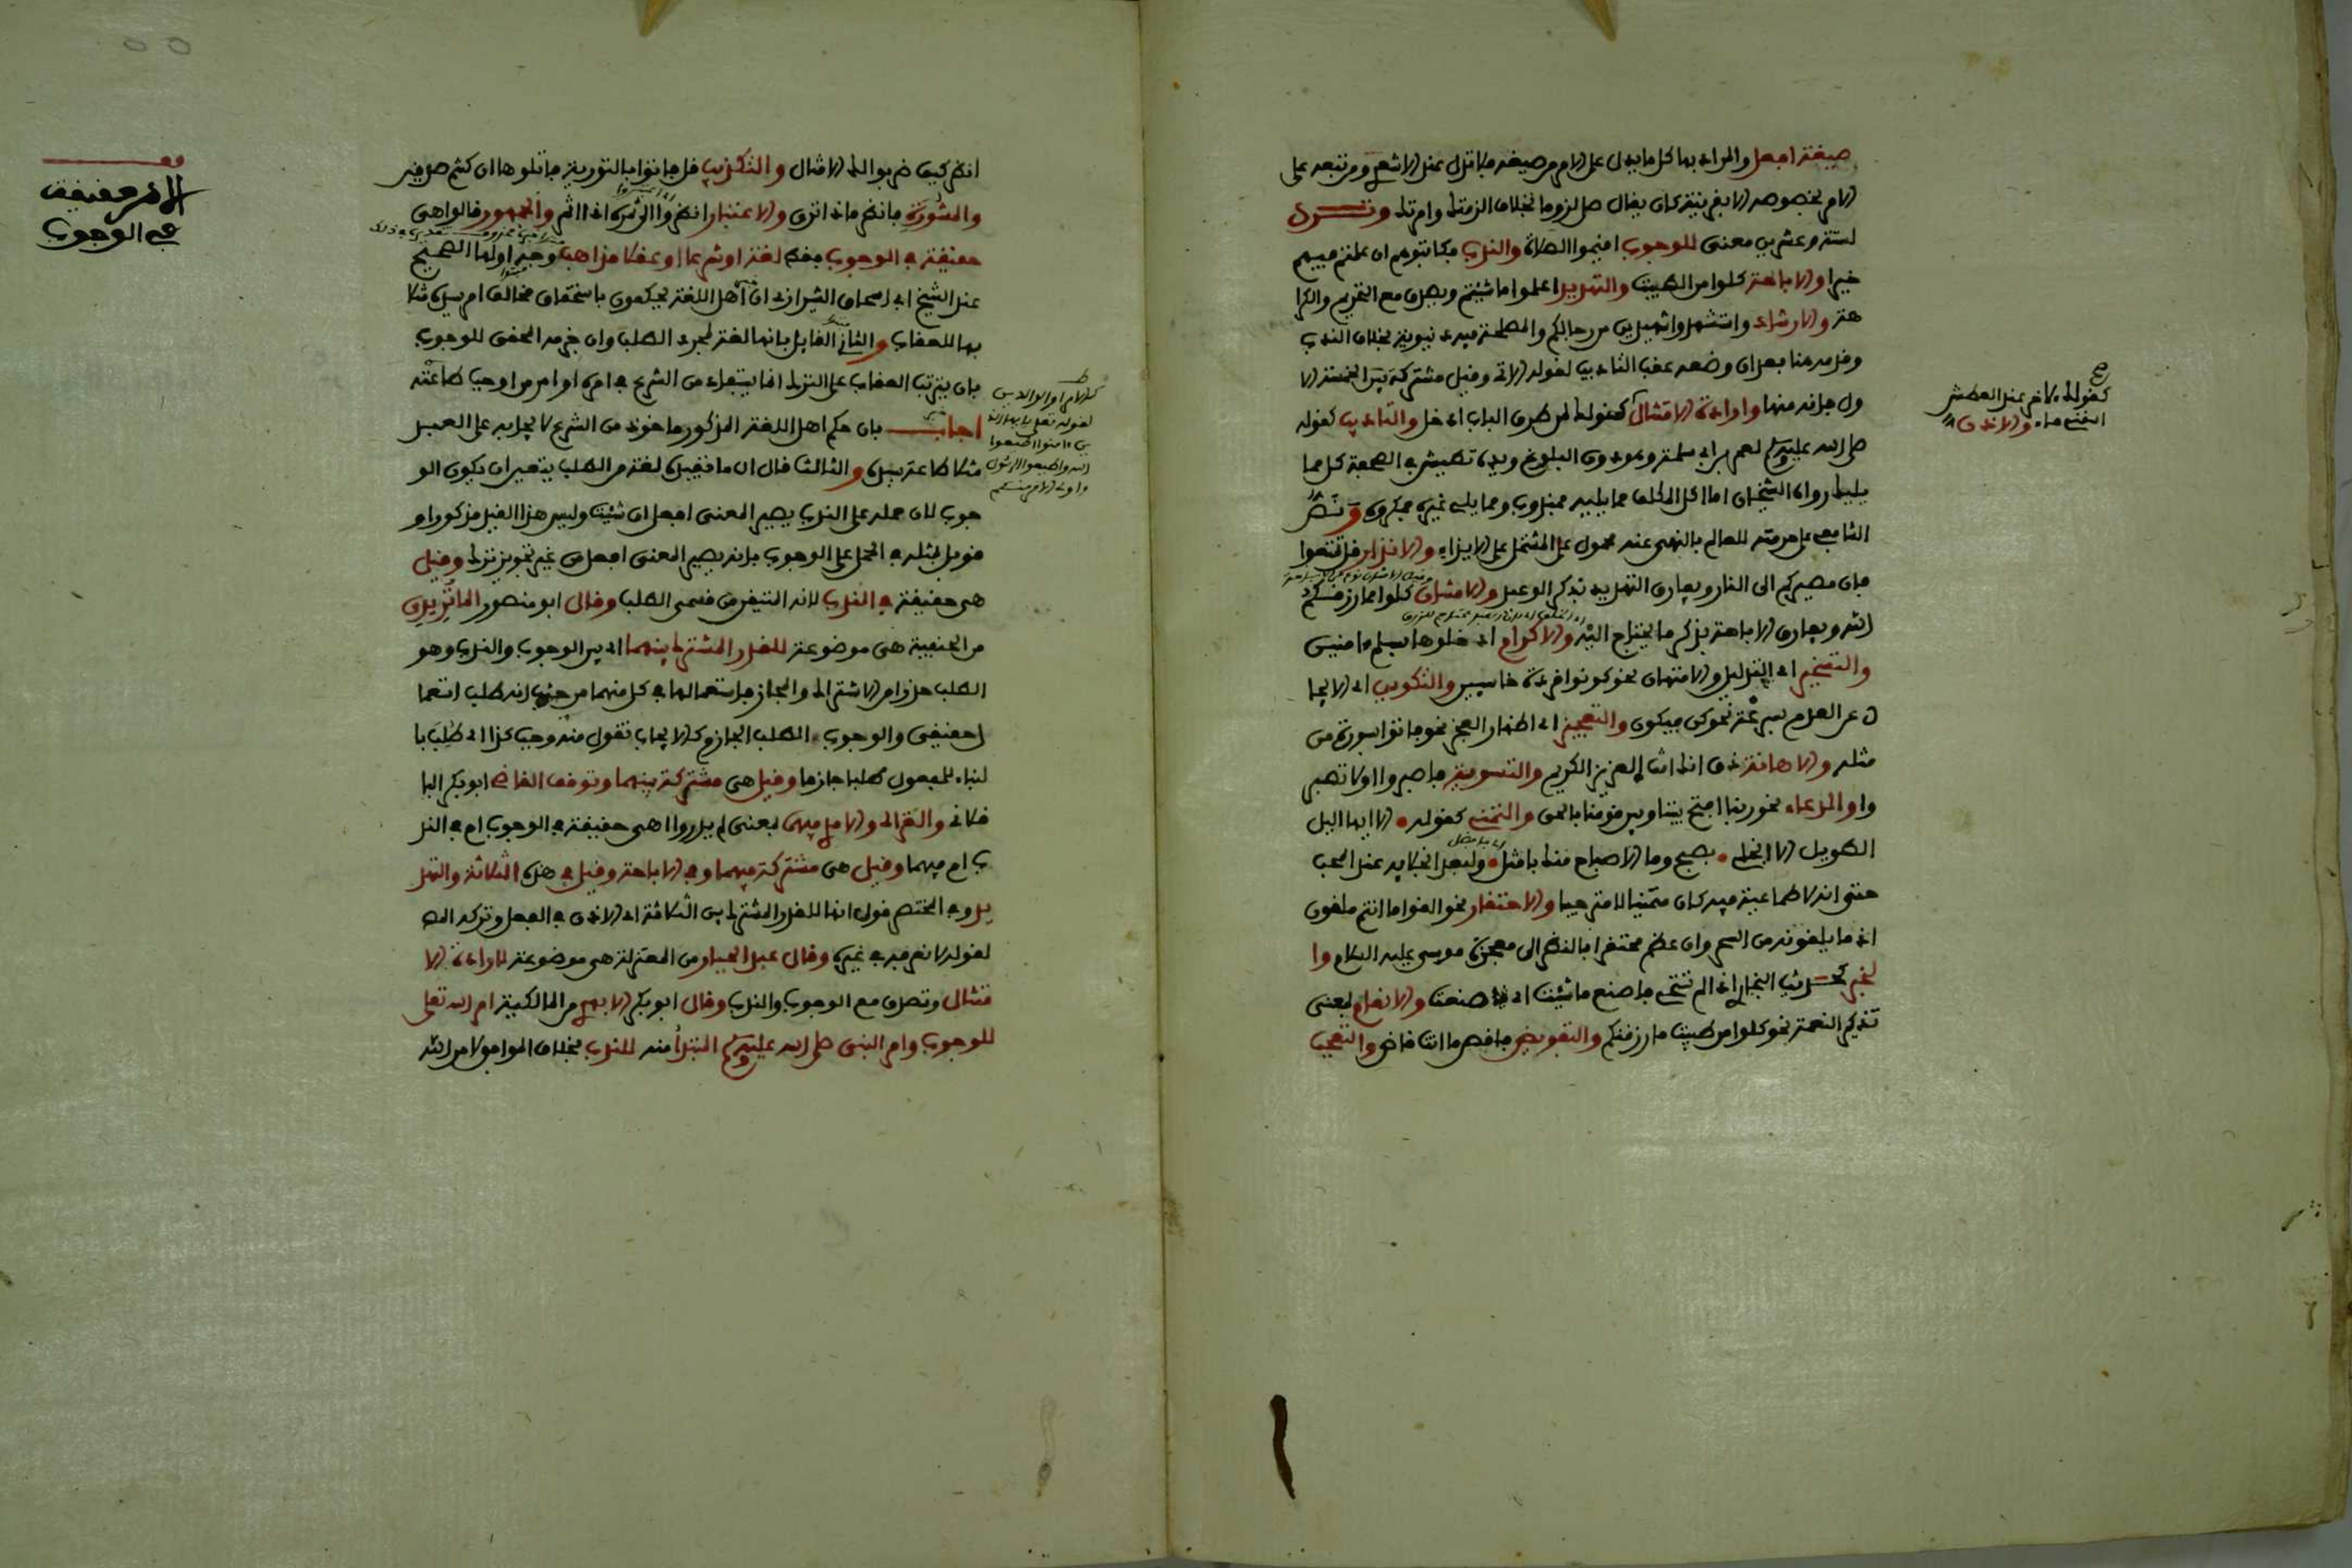 صيغة افعل والمراد بها كل ما يدل على الامر من صيغه فلا تدل عند الاشعري ومن تبعه على
الامر بخصوصه الا بقرينة كان يقال صل لزوما بخلاف الزمتك وامرتك وترد
لستة وعشرين معنى للوجوب اقيموا الصلاة والندب فكاتبوهم ان علمتم فيهم
خيرا والاباحة كلوا من الطيبت والتهديد اعملوا ما شيتم ويصدق مع التحريم والكرا
هة والارشاد واستشهدوا شهيدين من رجالكم والمصلحة فيه دنيوية بخلاف الندب
وقدمه هنا بعد ان وضعه عقب التاديب لقوله الاتي وقيل مشتركة بين الخمسة الا
ول فانه منها وارادة الامتثال كقولك لمن طرق الباب ادخل والتاديب كقوله
صلى الله عليه وسلم لعمر بن ابي سلمة وهو دون البلوغ ويده تطيش في الصحفة كل مما
يليك رواه الشيخان اما اكل المكلف مما يليه فمندوب ومما يلي غيره فمكروه ونص
الشافعي على حرمته للعالم بالنهي عنه محمول على المشتمل على الايذاء والانذار قل تمتعوا
فان مصيركم الى النار ويفارق التهديد بذكر الوعيد والامتنان كلوا مما رزقكم
الله ويفارق الاباحة بذكر ما يحتاج اليه والاكرام ادخلوها بسلم امنين
والتسخير اي التذليل والامتهان نحو كونوا قردة خاسيين والتكوين اي الايجا
د عن العدم بسرعة نحو كن فيكون والتعجيز اي اظهار العجز نحو فاتوا بسورة من
مثله والاهانة ذق انك انت العزيز الكريم والتسوية فاصبروا او لا تصبر
وا والدعاء نحو ربنا افتح بيننا وبين قومنا بالحق والتمني كقوله الا ايها اليل
الطويل الا انجلي بصبح وما الاصباح منك بامثل ولبعد انجلايه عند المحب
حتى انه لا طماعية فيه كان متمنيا لا مترجيا والاحتقار نحو القوا ما انتم ملقون
اذ ما يلقونه من السحر وان عظم محتقر بالنظر الى معجزة موسى عليه السلام وا
لخبر كحديث البخاري اذا لم تستحي فاصنع ما شيت اي صنعت والانعام بمعنى
تذكير النعمة نحو كلوا من طيبت ما رزقنكم والتفويض فاقض ما انت قاض والتعجب
كقولك لاخر عند العطش
اسقني ماء والاذن
انظر كيف ضربوا لك الامثال والتكذيب قل فاتوا بالتورية فاتلوها ان كنتم صدقين
والمشورة فانظر ماذا ترى والاعتبار انظروا الى ثمره اذا اثمر والجمهور قالوا هي
حقيقة في الوجوب فقط لغة او شرعا او عقلا مذاهب وجه اولها الصحيح
عند الشيخ ابي اسحاق الشيرازي ان اهل اللغة يحكمون باستحقاق مخالف امر سيده مثلا
بها للعقاب والثاني القايل بانها لغة لمجرد الطلب وان جزمه المحقق للوجوب
بان يترتب العقاب على الترك انما يستفاد من الشرع في امره او امر من اوجب طاعته
اجاب بان حكم اهل اللغة المذكور ماخوذ من الشرع لايجابه على العبد
مثلا طاعة سيده والثالث قال ان ما تفيده لغة من الطلب يتعين ان يكون الو
جوب لان حمله على الندب يصير المعنى افعل ان شئت وليس هذا القيد مذكورا و
قوبل بمثله في الحمل على الوجوب فانه يصير المعنى افعل من غير تجويز ترك وقيل
هي حقيقة في الندب لانه المتيقن من قسمي الطلب وقال ابو منصور الماتريدي
من الحنفية هي موضوعة للقدر المشترك بينهما اي بين الوجوب والندب وهو
الطلب حذرا من الاشتراك والمجاز فاستعمالها في كل منهما من حيث انه طلب استعما
ل حقيقي والوجوب الطلب الجازم كالايجاب تقول منه وجب كذا اي طلب با
لبناء للمفعول طلبا جازما وقيل هي مشتركة بينهما وتوقف القاضي ابو بكر البا
قلاني والغزالي والامدي فيها بمعنى لم يدروا اهي حقيقة في الوجوب ام في الند
ب ام فيهما وقيل هي مشتركة فيهما وفي الاباحة وقيل في هذه الثلاثة والتهد
يد وفي المختصر قول انها للقدر المشترك بين الثلاثة اي الاذن في الفعل وتركه المص
لقوله لا نعرفه في غيره وقال عبد الجبار من المعتزلة هي موضوعة لارادة الا
متثال وتصدق مع الوجوب والندب وقال ابو بكر الابهري من المالكية امر الله تعلى
للوجوب وامر النبي صلى الله عليه وسلم المبتدا منه للندب بخلاف الموافق لامر الله
لقوله تعلى يا ايها الذ
ين ءامنوا اطيعوا
الله واطيعوا الرسول
واولي الامر منكم
قف
الامر حقيقة
في الوجوب